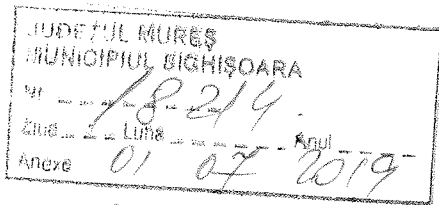 JUDEȚUL MUREȘ
MUNICIPIUL SIGHIȘOARA
Nr. 18214
Ziua Luna Anul
Anexe 01 07 2019